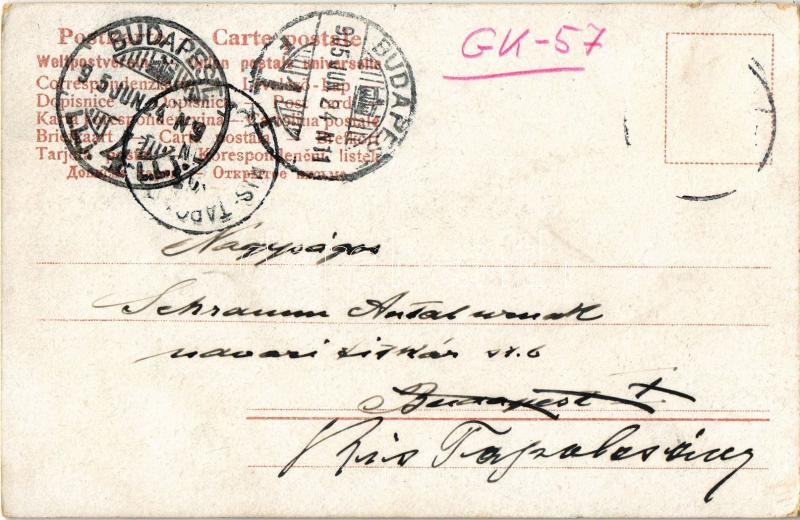 GK-57
Postkarte Carte postale
Weltpostverein Union postale universelle
Correspondenzkarte Levelező-Lap
Dopisnice Dopisnica Post card
Karta korespondencyjna Cartolina postale
Briefkaart Carte postala Brefkort
Tarjeta postal Korespondenční lístek
Открытое письмо
BUDAPEST
905 JUN 24 N 9
BUDAPEST
905 JUN 24 N 11
Nagyságos
Schramm Antal urnak
udvari titkár st. b
Budapest I.
Kis Tapolcsány